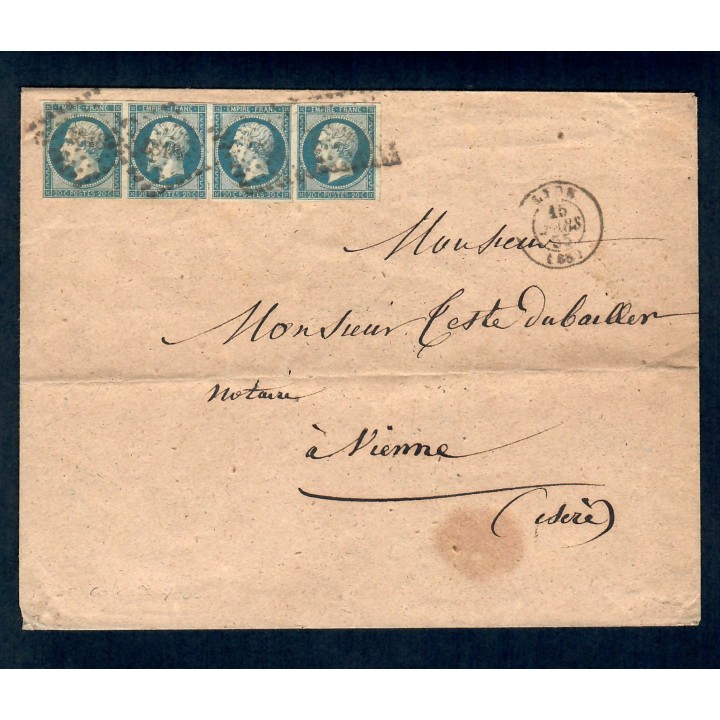 EMPIRE FRANC EMPIRE FRANC EMPIRE FRANC EMPIRE FRANC
20 C POSTES 20 C 20 C POSTES 20 C 20 C POSTES 20 C 20 C POSTES 20 C
LYON
15
MARS
55
(68)
Monsieur
Monsieur Teste dubailler
notaire
à Vienne
(isère)